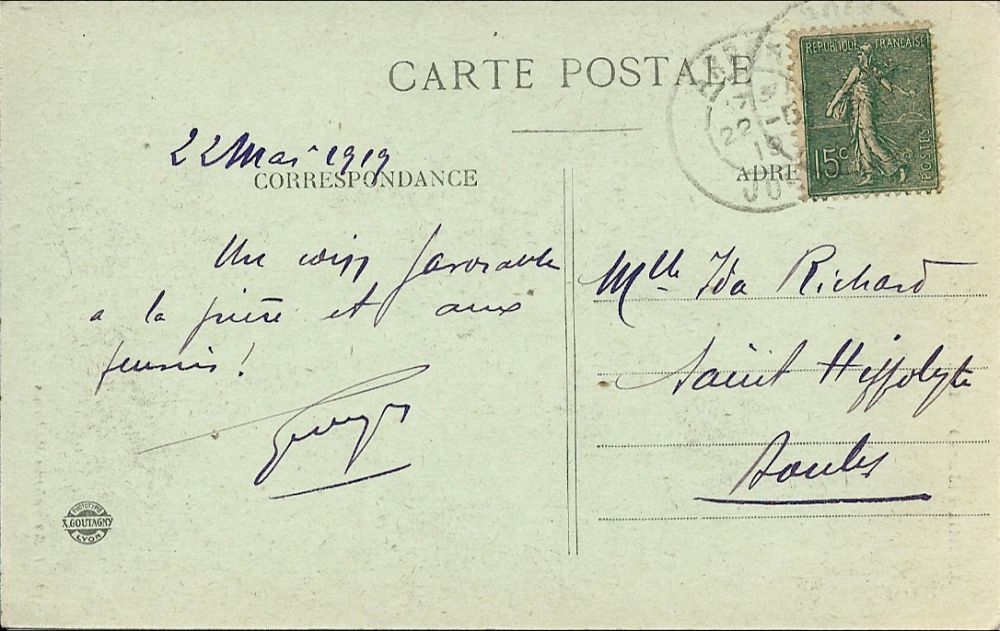 CARTE POSTALE
22 Mai 1919
CORRESPONDANCE
Un coin favorable
a la prière et aux
Georges
PHOTOTYPIE
A. GOUTAGNY
LYON
REPUBLIQUE FRANÇAISE
15c
POSTES
ADRE
Mlle Ida Richard
Saint Hippolyte
Doubs